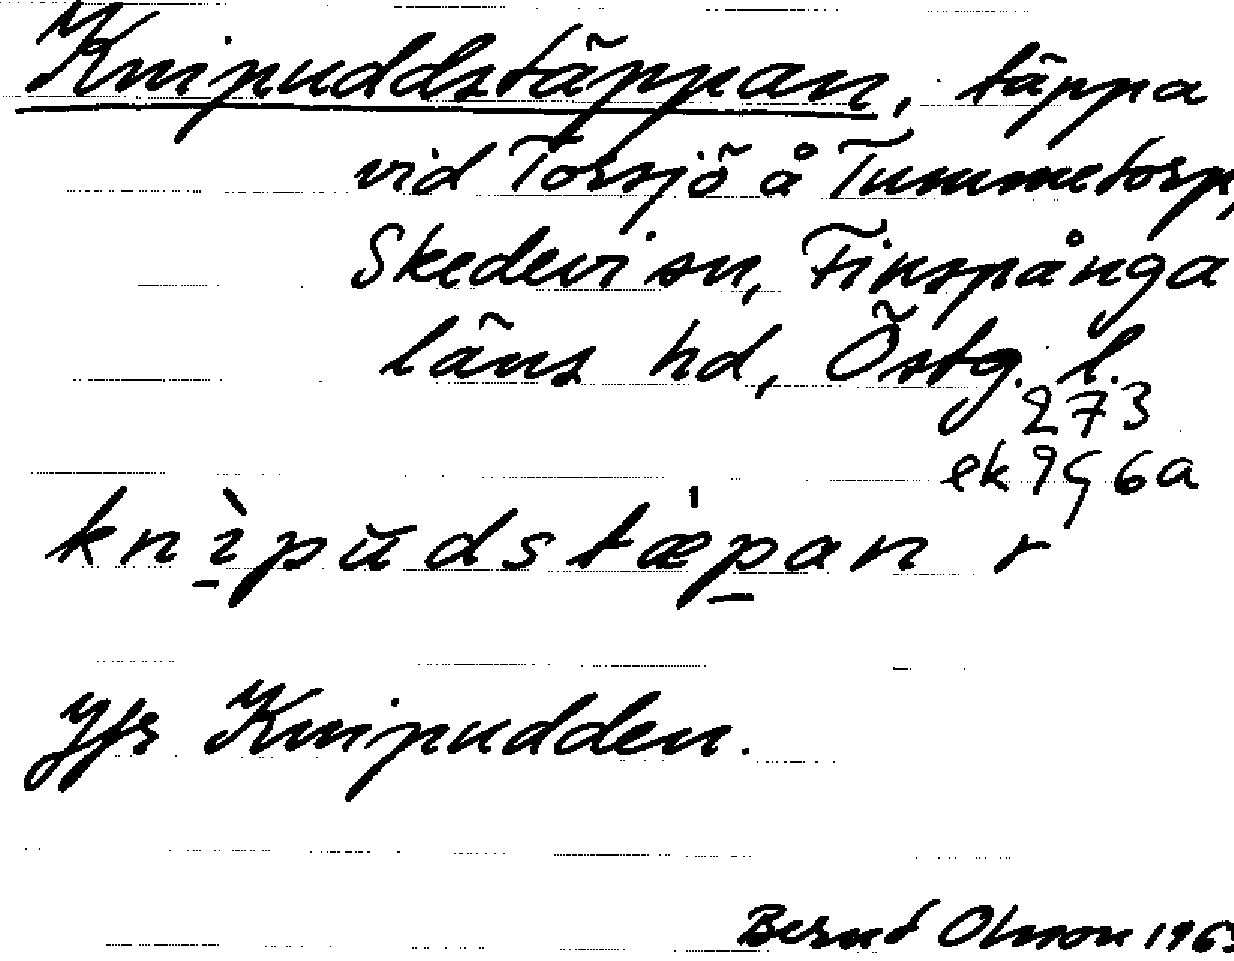 Knipuddstäppan, täppa
vid Torsjö å Tummetorp,
Skedevi sn, Finspånga
läns hd, Östg. l.
273
ek 9g6a
knìpŭdstæpan r
Jfr Knipudden.
Bernd Olsson 196